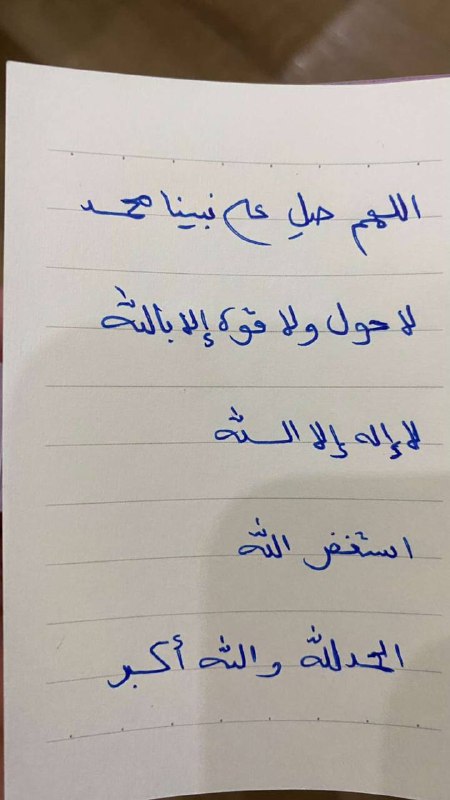 اللهم صلِ على نبينا محمد
لا حول ولا قوة إلا بالله
لا إله إلا الله
استغفر الله
الحمدلله والله أكبر